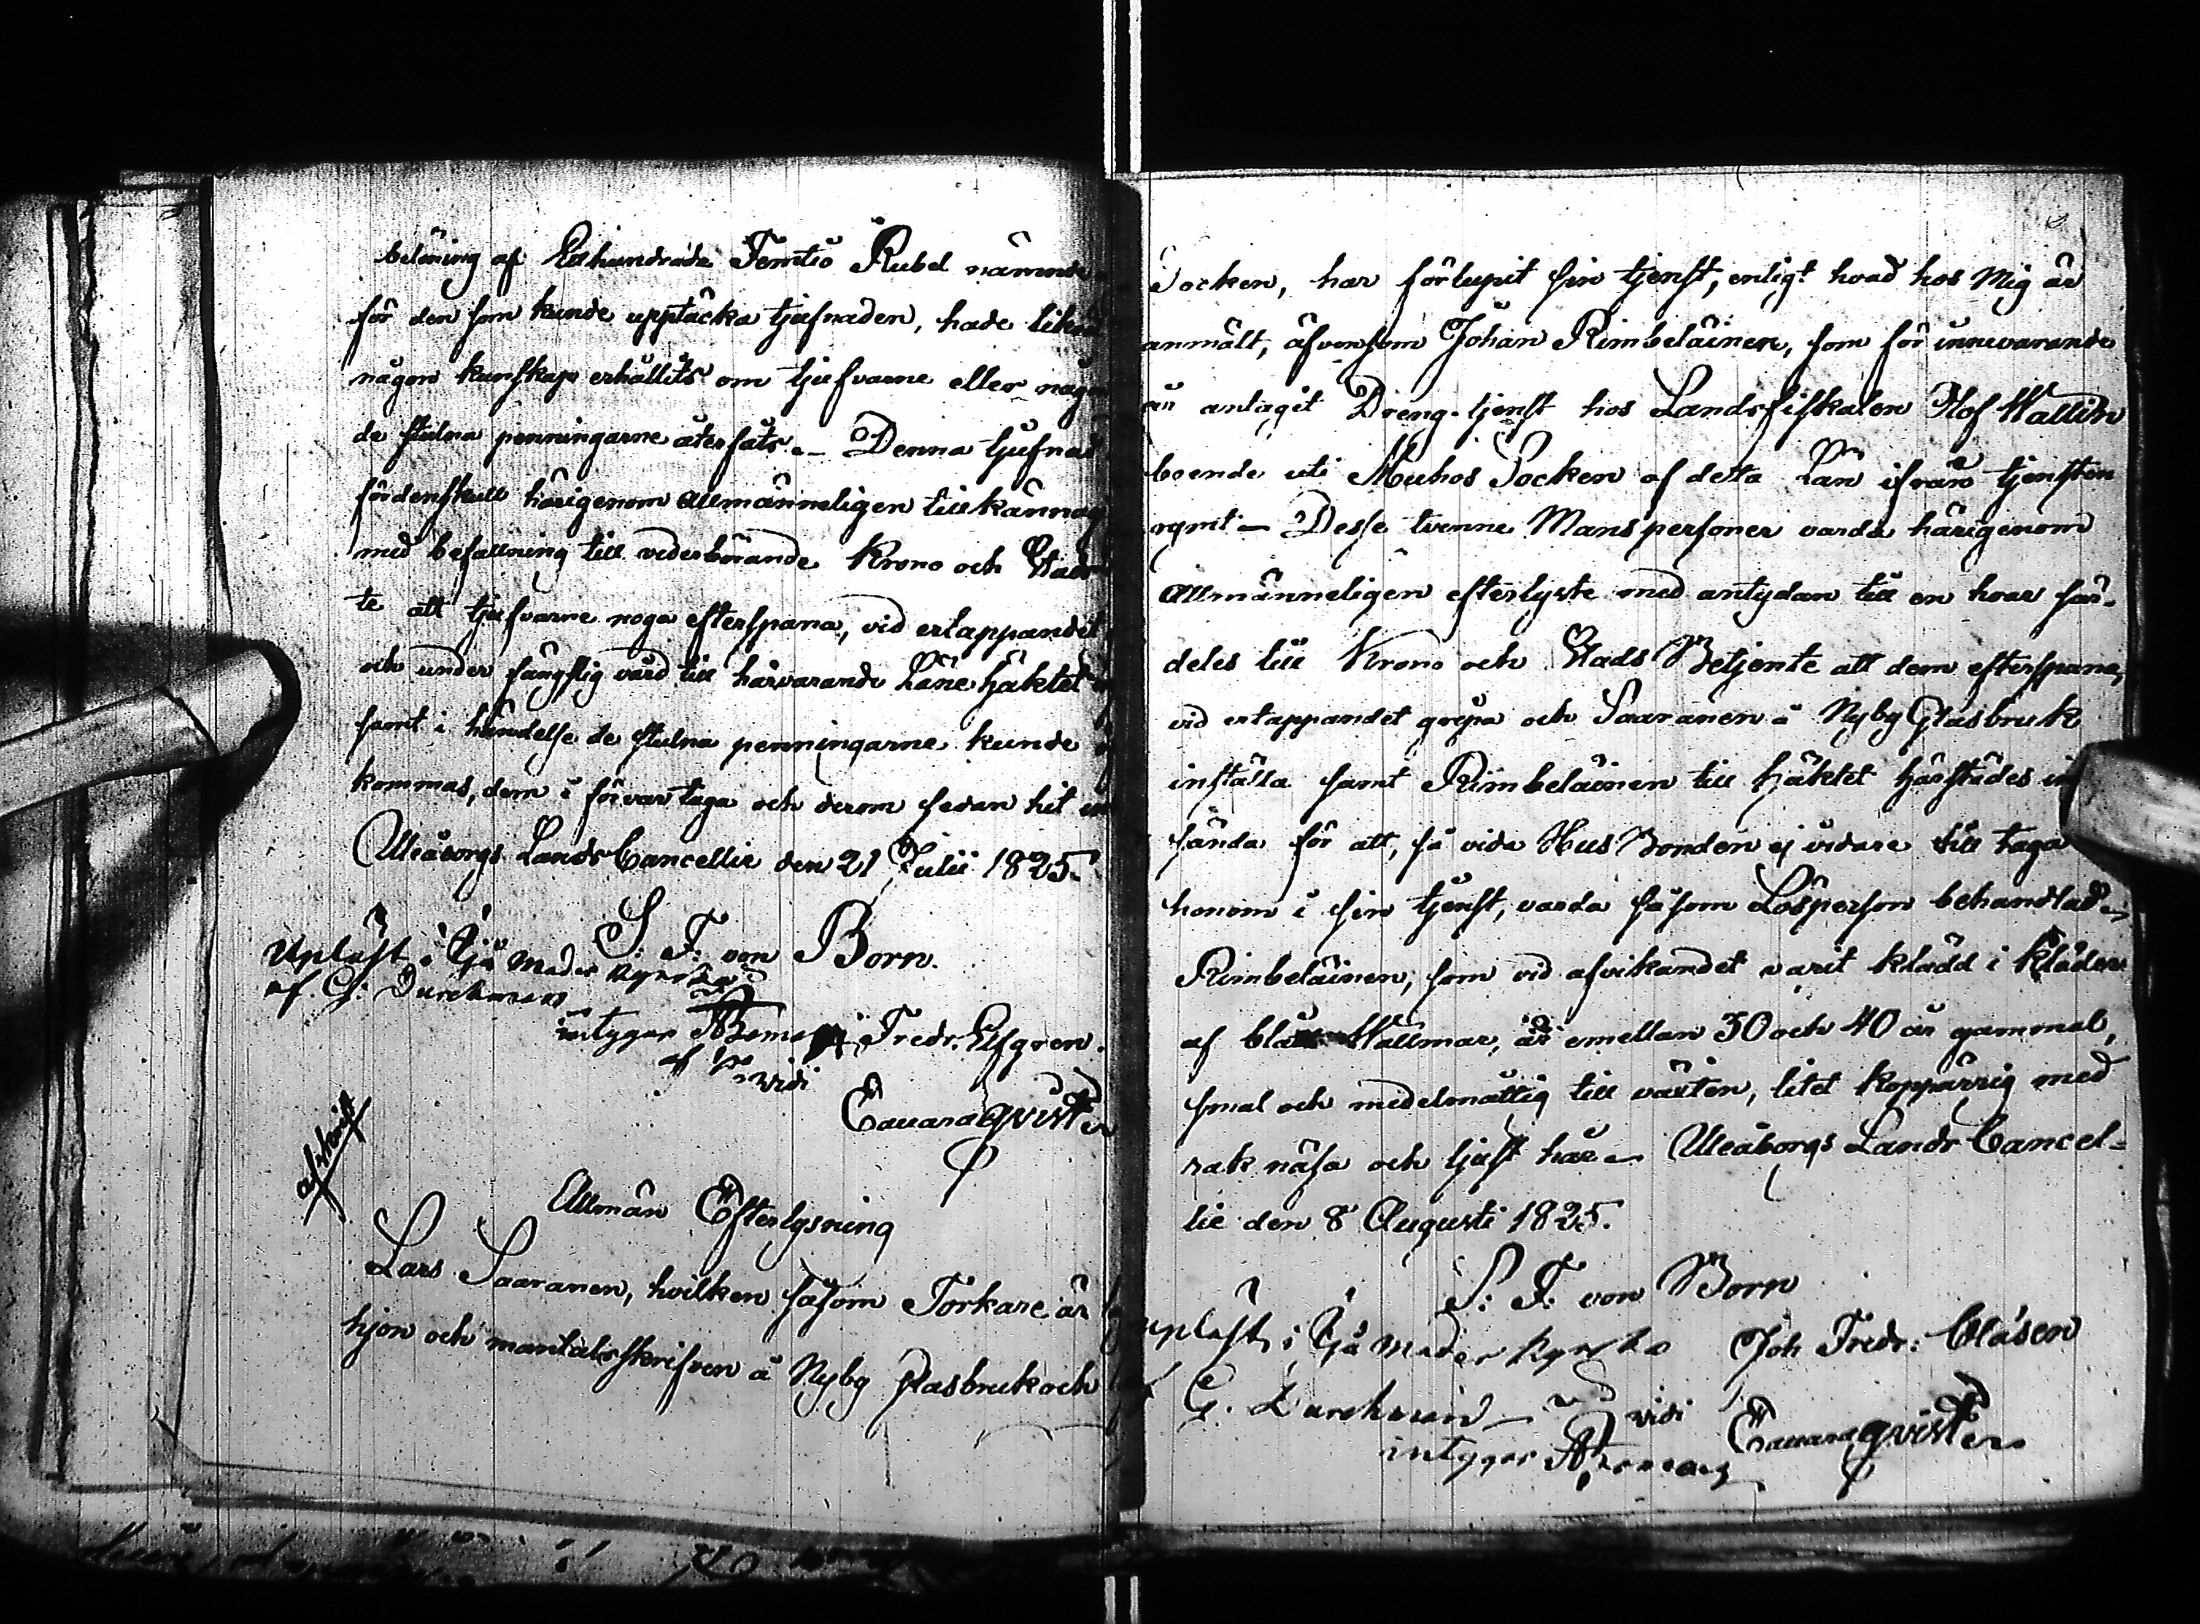 belöning af Etthundrade Femtio Rubel nämnde
för den som kunde upptäcka tjufnaden, hade lik
någon kunskap erhållits om tjufvarne eller någ
de stulna penningarne återfåts. – Denna tjufnad
fördenskull härigenom Allmänneligen tillkännag
med befallning till vederbörande Krono och Stads
te att tjufvarne noga efterspana, vid ertappandet
och under fängslig vård till härvarande Länehäktet
samt i händelse de stulna penningarne kunde
kommas, dem i förvar taga och derom sedan hit
Uleåborgs LandsCancellie den 21 Julii 1825.
S: F: von Born.
Upläst i
Kyrka
af G: Durchman
intygar
Fredr. Elfgren.
vidi
afskrift
Allmän Efterlysning
Lars Saaranen, hvilken såsom Torkare är
hjon och mantalsskrifven å Nyby Glasbruk och
Socken, har förlupit sin tjenst, enligt hvad hos Mig är
anmält, äfvensom Johan Rimbeläinen, som för innevarande
år antagit Dreng-tjenst hos Landsfiskalen Olof Wallin
boende uti Muhos Socken af detta Län ifrån tjensten
rymt – Desse tvenne Manspersoner varda härigenom
Allmänneligen efterlyste med antydan till en hvar sär-
deles till Krono och Stads Betjente att dem efterspana,
vid ertappandet gripa och Saaranen å Nyby Glasbruk
inställa samt Rimbeläinen till häktet härstädes in
sända för att, så vida HusBonden ej vidare till taga
honom i sin tjenst, varda såsom Lösperson behandlad –
Rimbeläinen, som vid afvikandet varit klädd i kläder
af blå Wallmar, är emellan 30 och 40 år gammal,
smal och medelmåttig till växten, litet kopparrig med
rak näsa och ljust hår – Uleåborgs Lands Cancel-
lie den 8 Augusti 1825.
S: F: von Born
upläst i
Kyrka Joh Fredr: Clasen
G. Durchman vidi
intygar